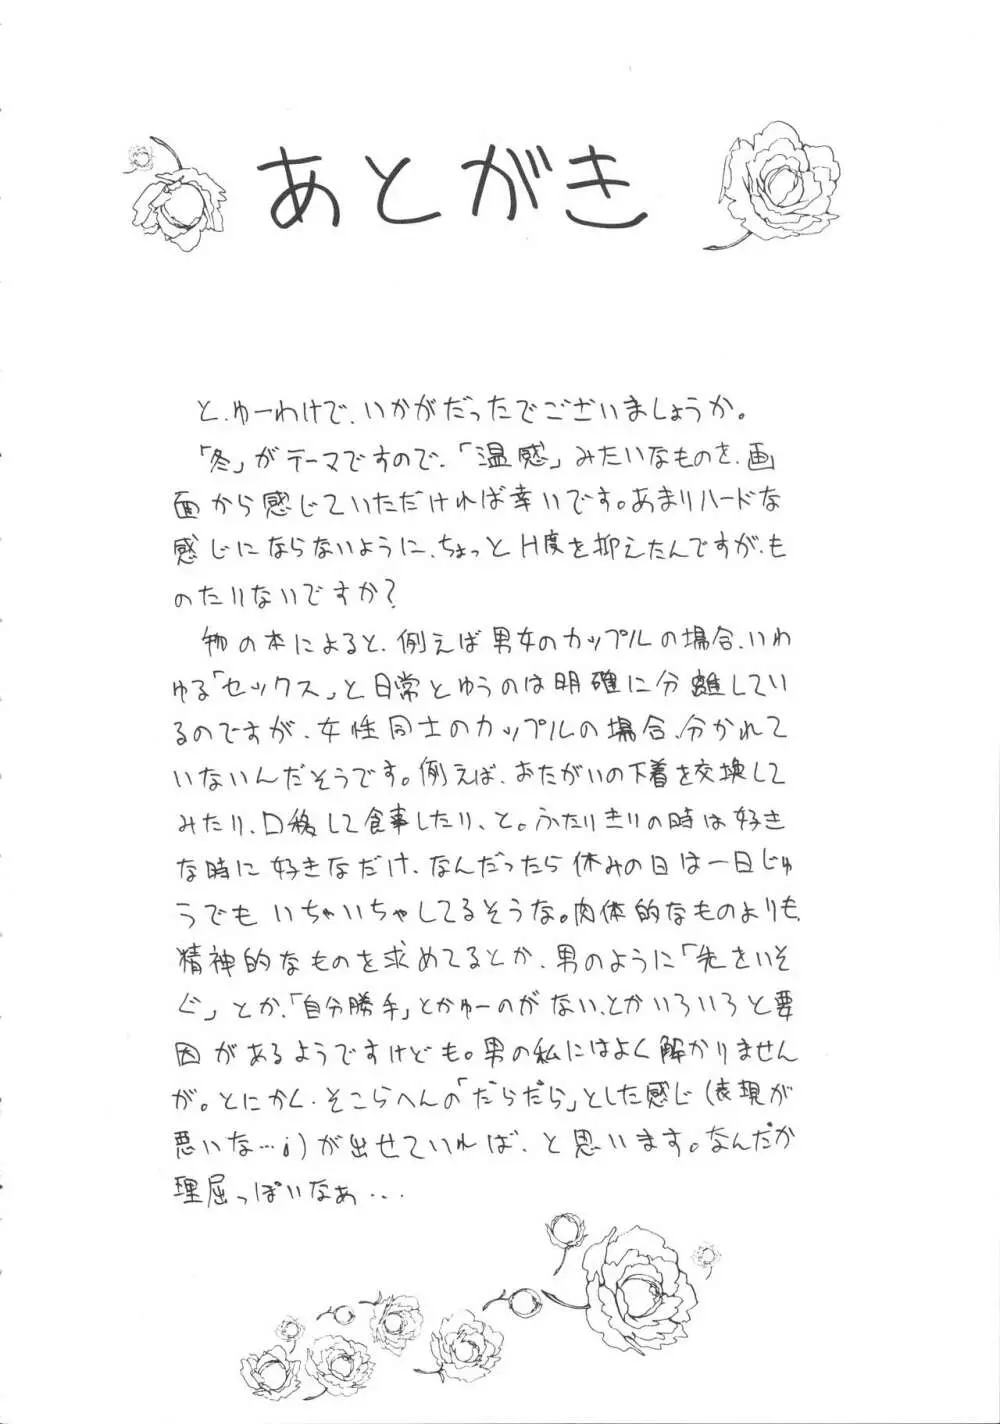 あとがき
と、ゆーわけで、いかがだったでございましょうか。
「冬」がテーマですので、「温感」みたいなものを、画
面から感じていただければ幸いです。あまりハードな
感じにならないように、ちょっとH度を抑えたんですが、も
のたりないですか?
物の本によると、例えば男女のカップルの場合、いわ
ゆる「セックス」と日常とゆうのは明確に分離してい
るのですが、女性同士のカップルの場合、分かれて
いないんだそうです。例えば、おたがいの下着を交換して
みたり、口移して食事したり、と。ふたりきりの時は好き
な時に好きなだけ、なんだったら休みの日は一日じゅ
うでもいちゃいちゃしてるそうな。肉体的なものよりも、
精神的なものを求めてるとか、男のように「先をいそ
ぐ」とか、「自分勝手」とかゆーのがない、とかいろいろと要
因があるようですけども。男の私にはよく解かりません
が。とにかく、そこらへんの「だらだら」とした感じ(表現が
悪いな…;)が出せていれば、と思います。なんだか
理屈っぽいなぁ…